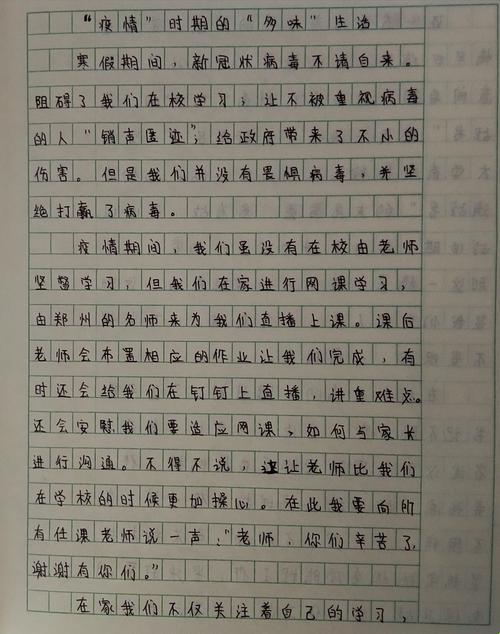 “疫情”时期的“多味”生活
寒假期间,新冠状病毒不请自来。
阻碍了我们在校学习,让不被重视病毒
的人“销声匿迹”,给政府带来了不小的
伤害。但是我们并没有畏惧病毒,并坚
绝打赢了病毒。
疫情期间,我们虽没有在校由老师
坚督学习,但我们在家进行网课学习,
由郑州的名师来为我们直播上课。课后
老师会布置相应的作业让我们完成,有
时还会给我们在钉钉上直播,讲重难点。
还会安慰我们要适应网课,如何与家长
进行沟通。不得不说,这让老师比我们
在学校的时候更加操心。在此我要向所
有任课老师说一声:“老师,你们辛苦了,
谢谢有你们。”
在家我们不仅关注着自己的学习,